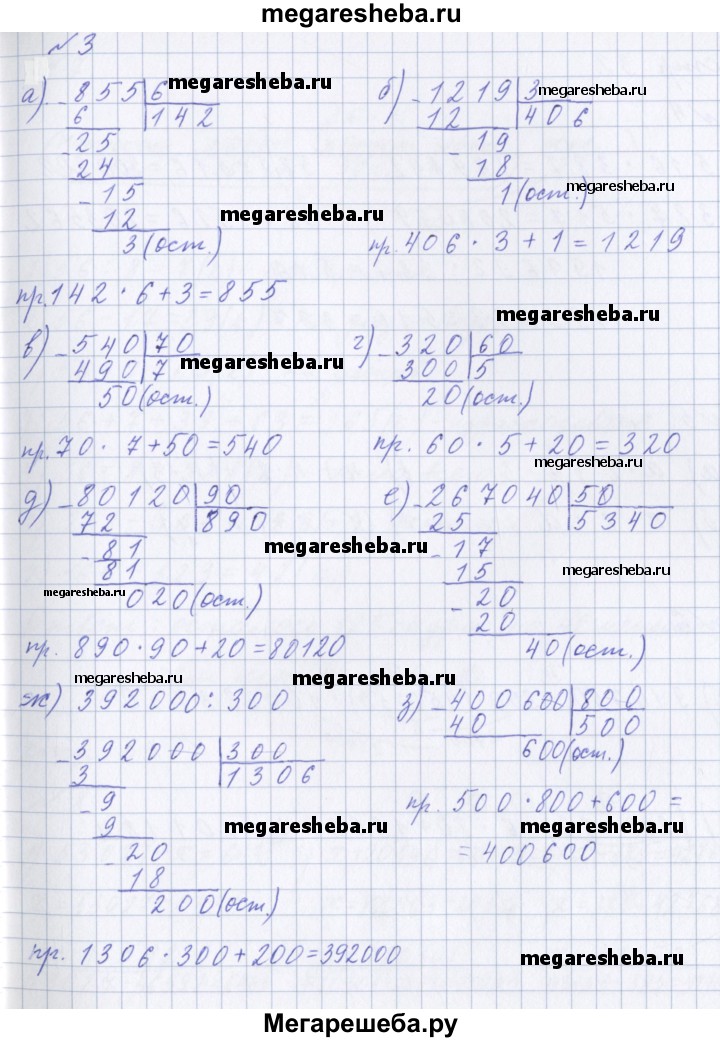 megaresheba.ru
№ 3
а) - 855 | 6 megaresheba.ru
6 | 142
- 25
24
- 15
12 megaresheba.ru
3 (ост.)
пр. 142 · 6 + 3 = 855
б) - 1219 | 3 megaresheba.ru
12 | 406
- 19
18
1 (ост.) megaresheba.ru
пр. 406 · 3 + 1 = 1219
megaresheba.ru
в) - 540 | 70
490 | 7 megaresheba.ru
50 (ост.)
пр. 70 · 7 + 50 = 540
г) - 320 | 60
300 | 5
20 (ост.)
пр. 60 · 5 + 20 = 320
megaresheba.ru
д) - 80120 | 90
72 | 890
- 81 megaresheba.ru
81
megaresheba.ru 020 (ост.)
пр. 890 · 90 + 20 = 80120
е) - 267040 | 50
25 | 5340
- 17
15 megaresheba.ru
- 20
20
40 (ост.)
megaresheba.ru megaresheba.ru
ж) 392000 : 300
- 392000 | 300
3 | 1306
- 9
9 megaresheba.ru
- 20
18
200 (ост.)
пр. 1306 · 300 + 200 = 392000
з) - 400600 | 800
40 | 500
600 (ост.)
пр. 500 · 800 + 600 =
megaresheba.ru
= 400600
megaresheba.ru
Мегарешеба.ру